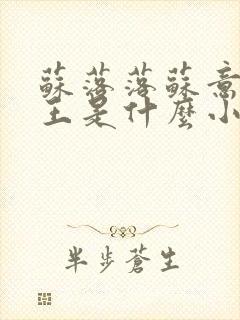 蘇落落蘇意
主是什麼小
半步蒼生